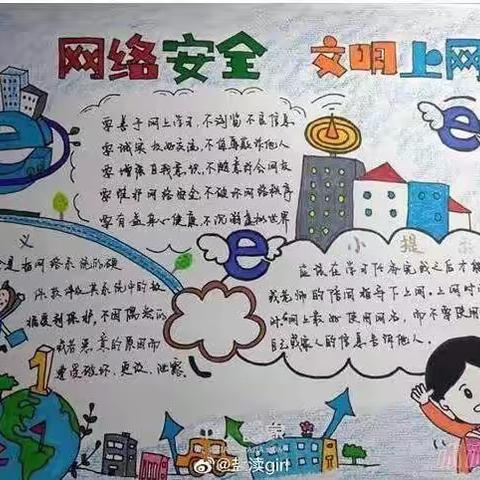 网络安全 文明上网
要善于网上学习,不浏览不良信息
要诚实友好交流,不侮辱欺诈他人
要增强自我意识,不随意约会网友
要维护网络安全,不破坏网络秩序
要有益身心健康,不沉溺虚拟世界
义
是指网络系统的硬
件软件及其系统中的数
据受到保护,不因偶然的
或者恶意的原因而
遭受破坏、更改、泄露。
小提示
应该在学习任务完成之后才能
或老师的陪同指导下上网。上网时
时网上最好使用网名,而不要使用
自己或家人的信息告诉他人。
1
@彭渎girl